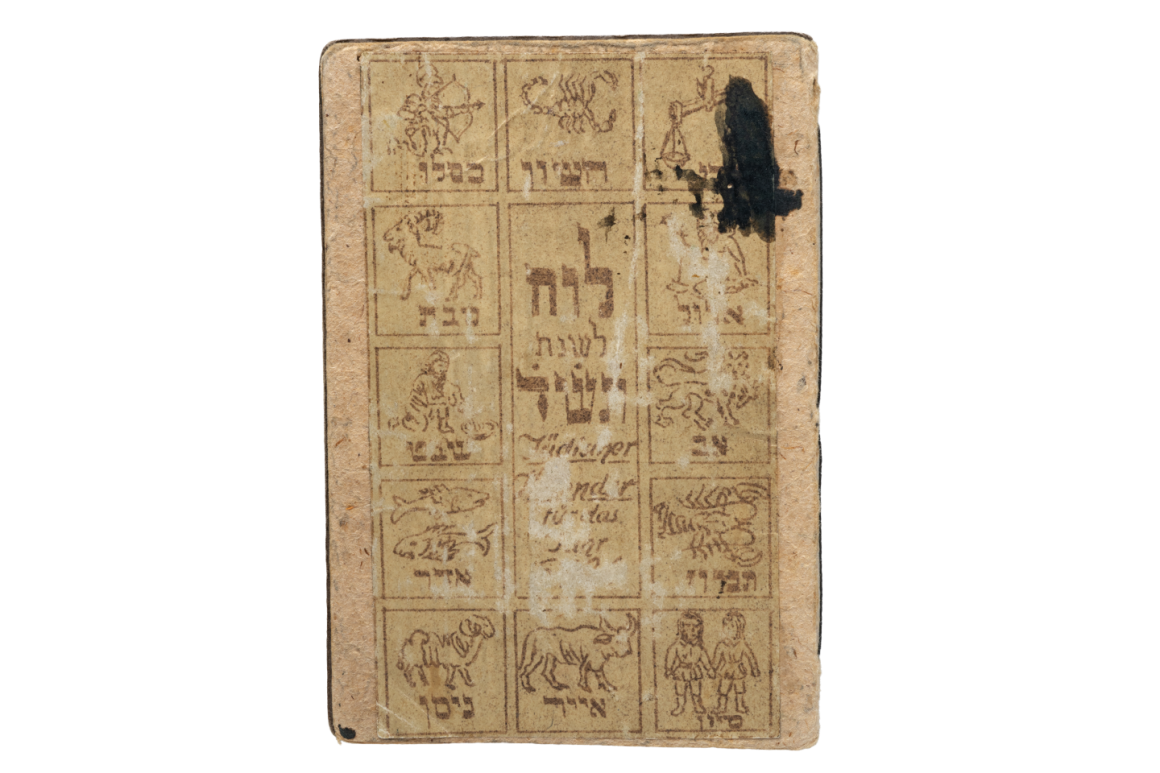 חשון
כסלו
אלול
טבת
לוח
לשנת
תשד
Jüdischer
Kalender
für das
Jahr
אב
שבט
תמוז
אדר
סיון
אייר
ניסן